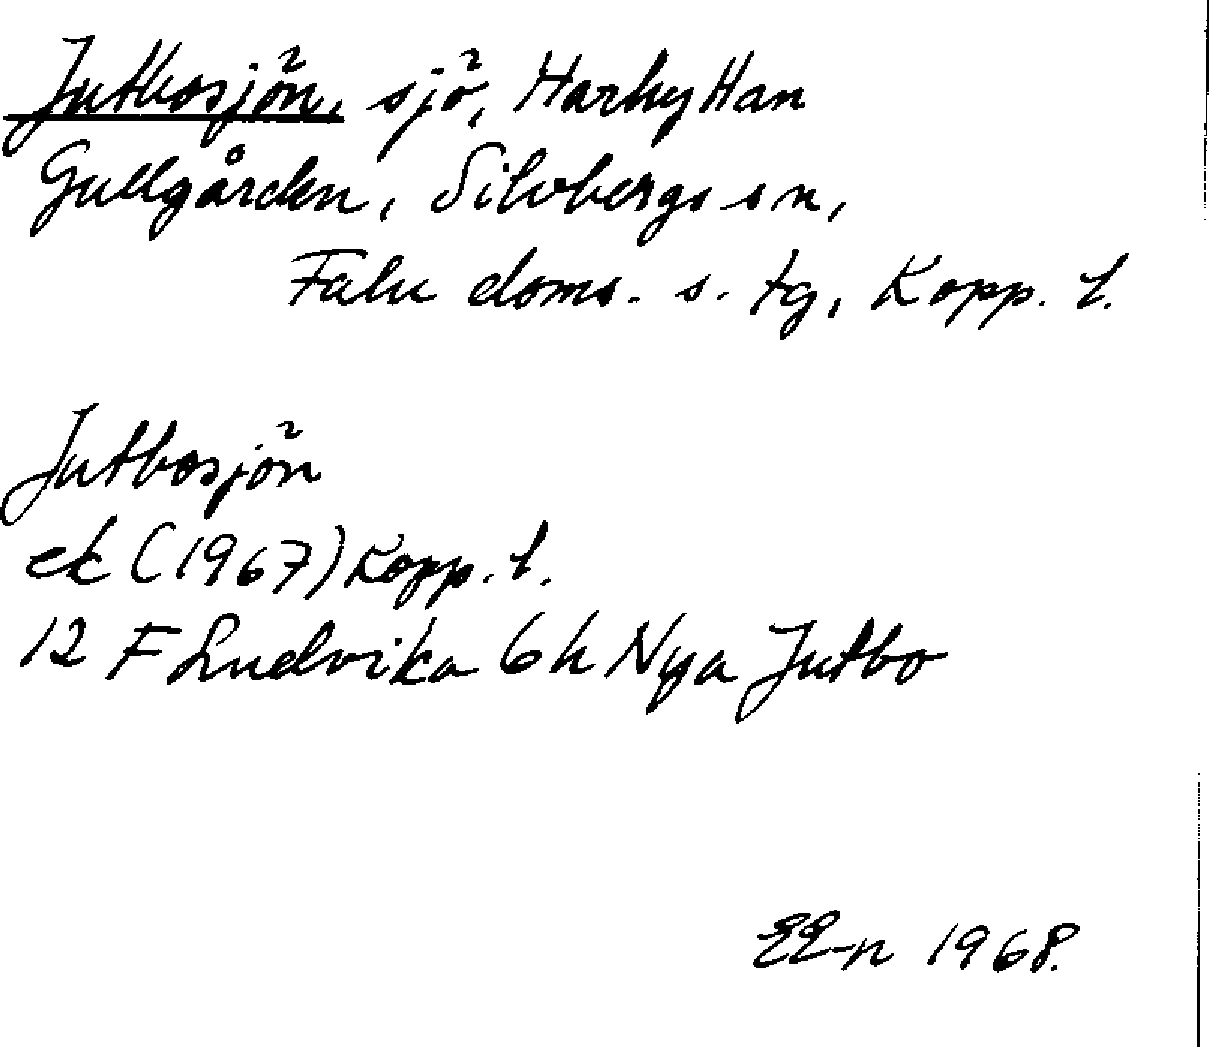 Jutbosjön, sjö, Harkyttan
Gullgården, Silvbergs sn,
Falu doms. s. tg, Kopp. l.
Jutbosjön
ek (1967) Kopp. l.
12 F Ludvika 6h Nya Jutbo
EE-n 1968.